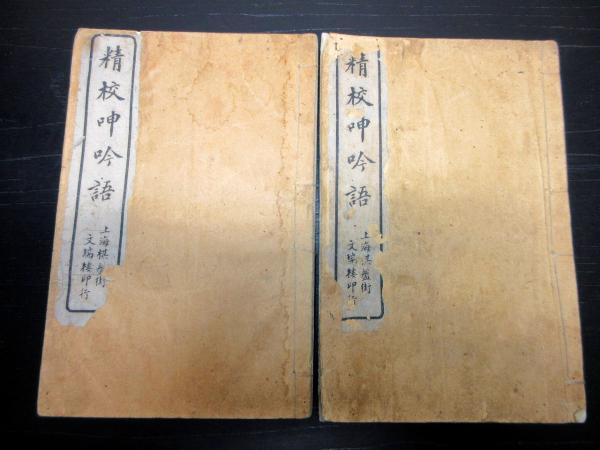 精校呻吟語
上海棋盤街
文瑞樓印行
精校呻吟語
上海棋盤街
文瑞樓印行